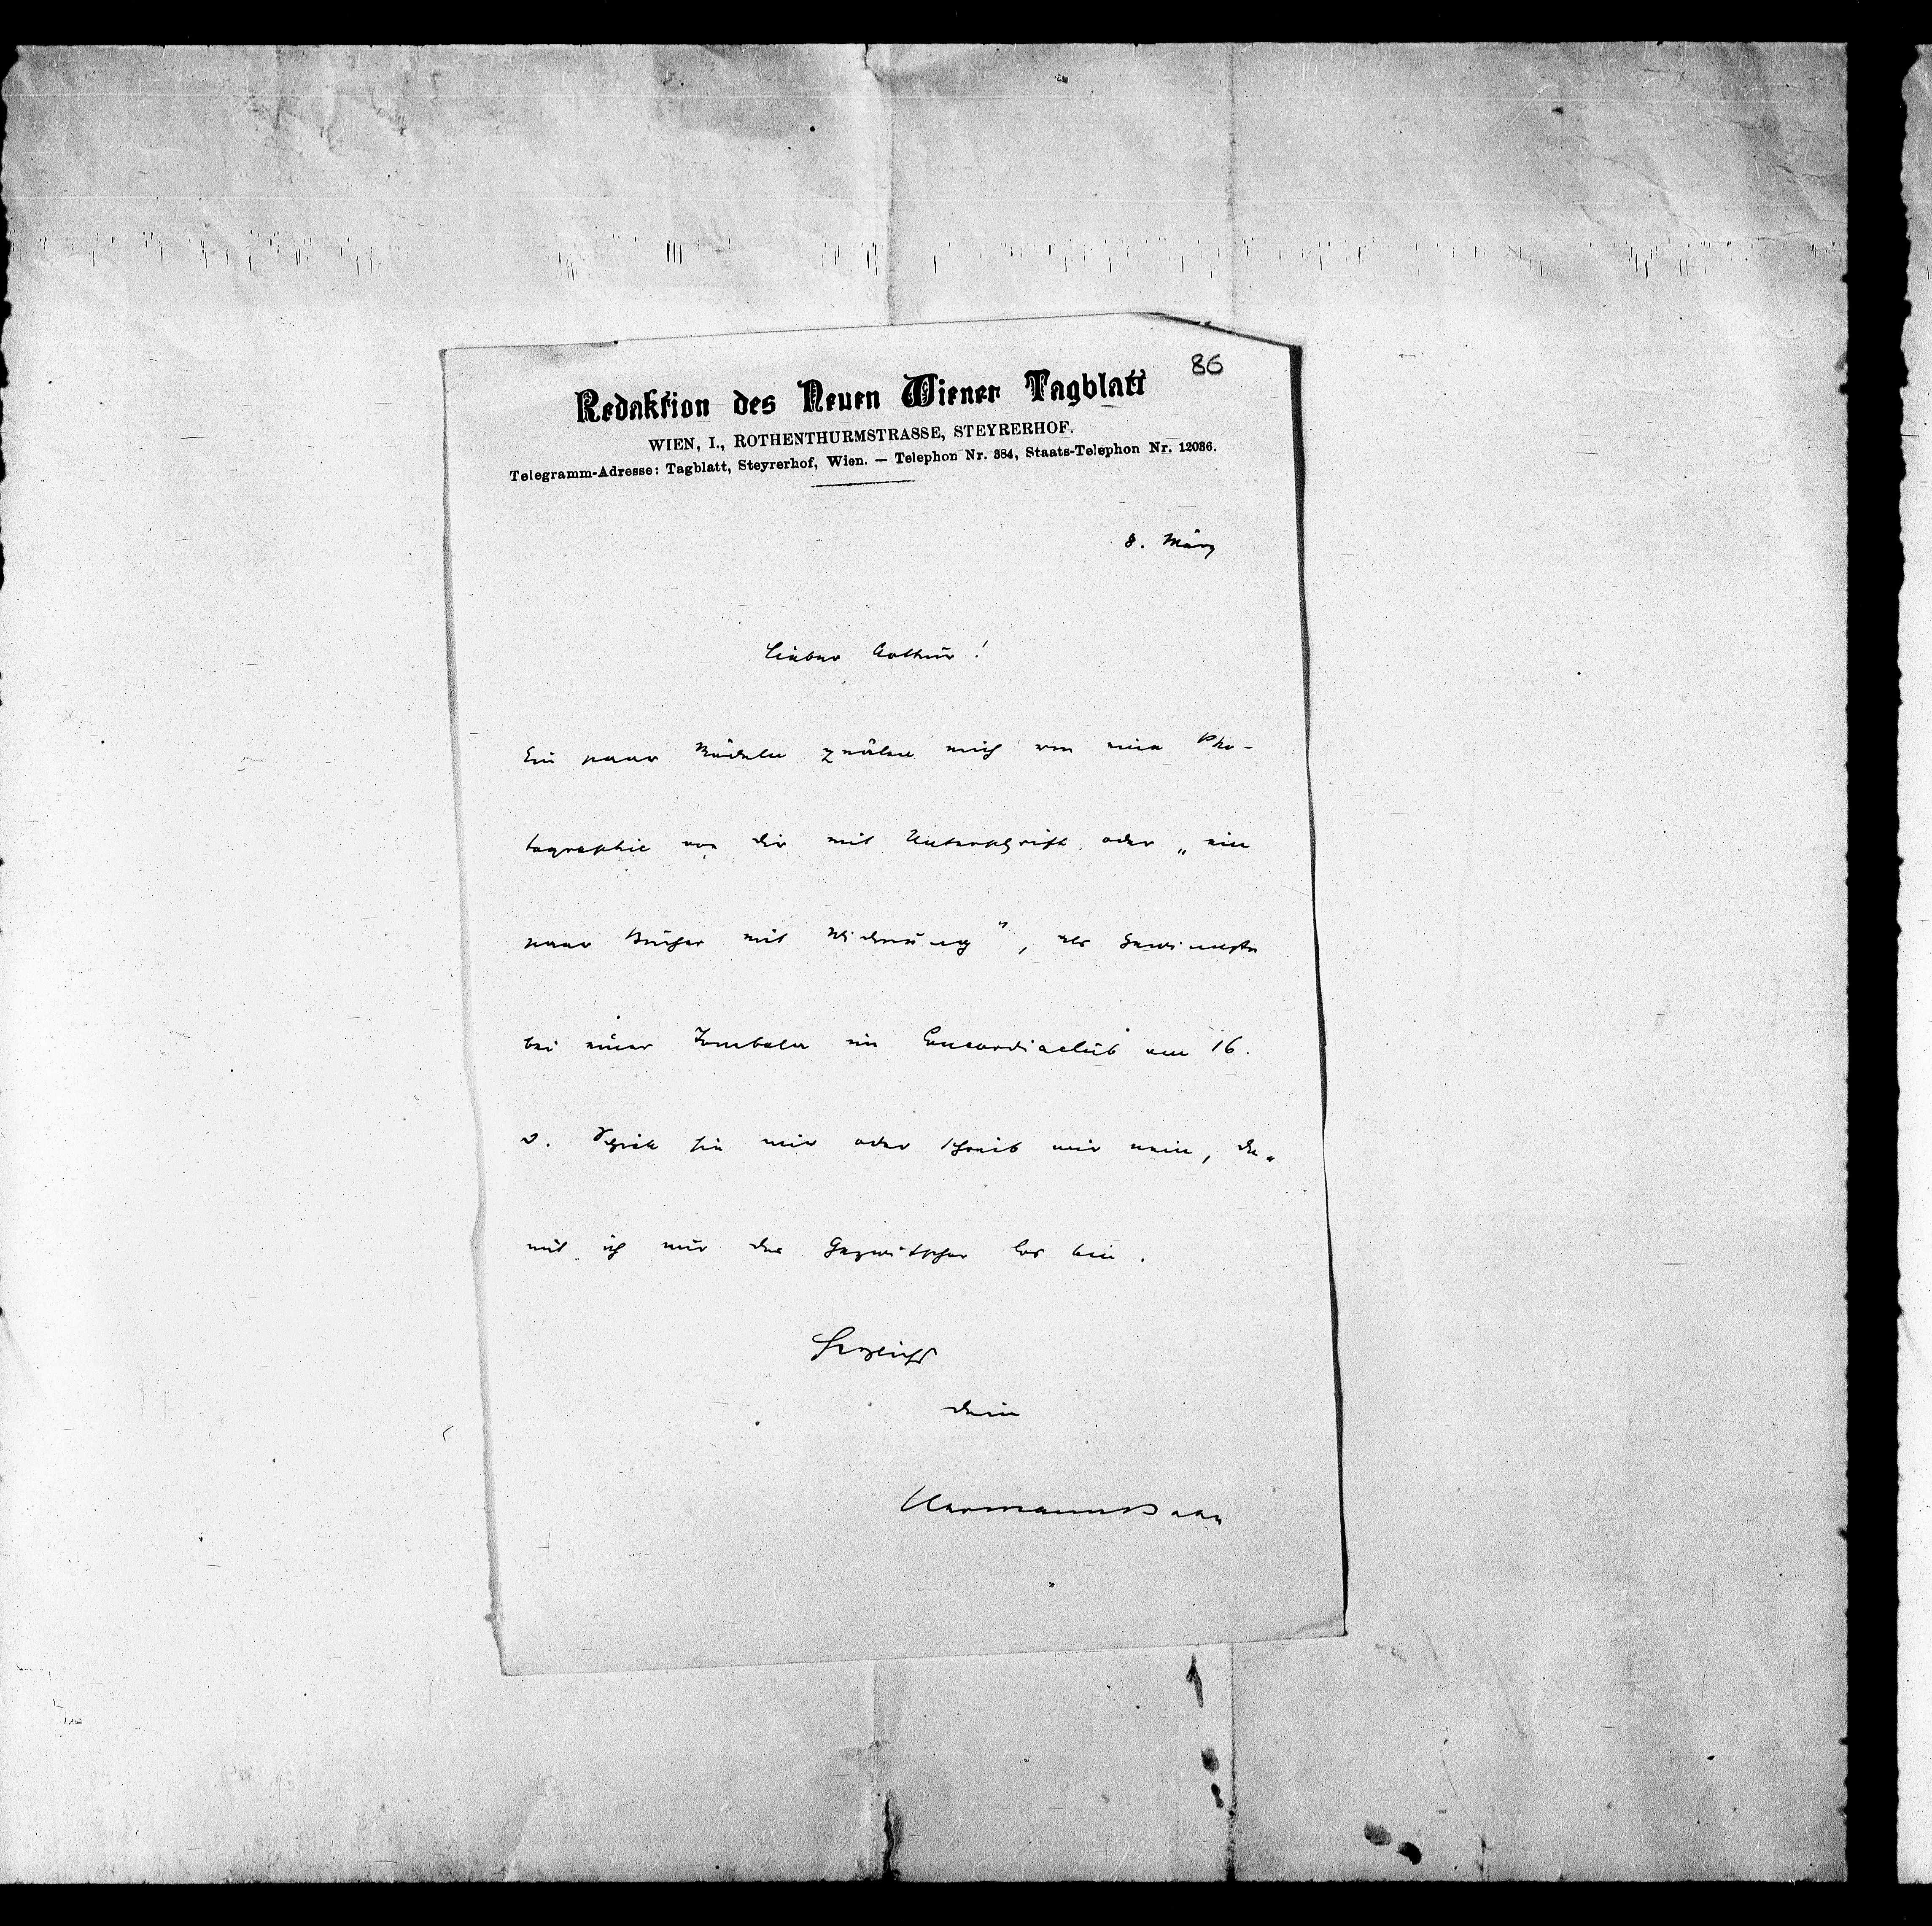 86
Redaktion des Neuen Wiener Tagblatt
WIEN, I., ROTHENTHURMSTRASSE, STEYRERHOF.
Telegramm-Adresse: Tagblatt, Steyrerhof, Wien. — Telephon Nr. 384, Staats-Telephon Nr. 12036.
8. März
Lieber Arthur!
Ein paar Mädeln quälen mich um eine Pho-
tographie von dir mit Unterschrift oder „ein
paar Bücher mit Widmung“, als Gewinnste
bei einer Tombola im Concordiaclub am 16.
d. Schick sie mir oder schreib mir nein, da-
mit ich nur das Gezwitscher los bin.
Herzlichst
dein
HermannBahr